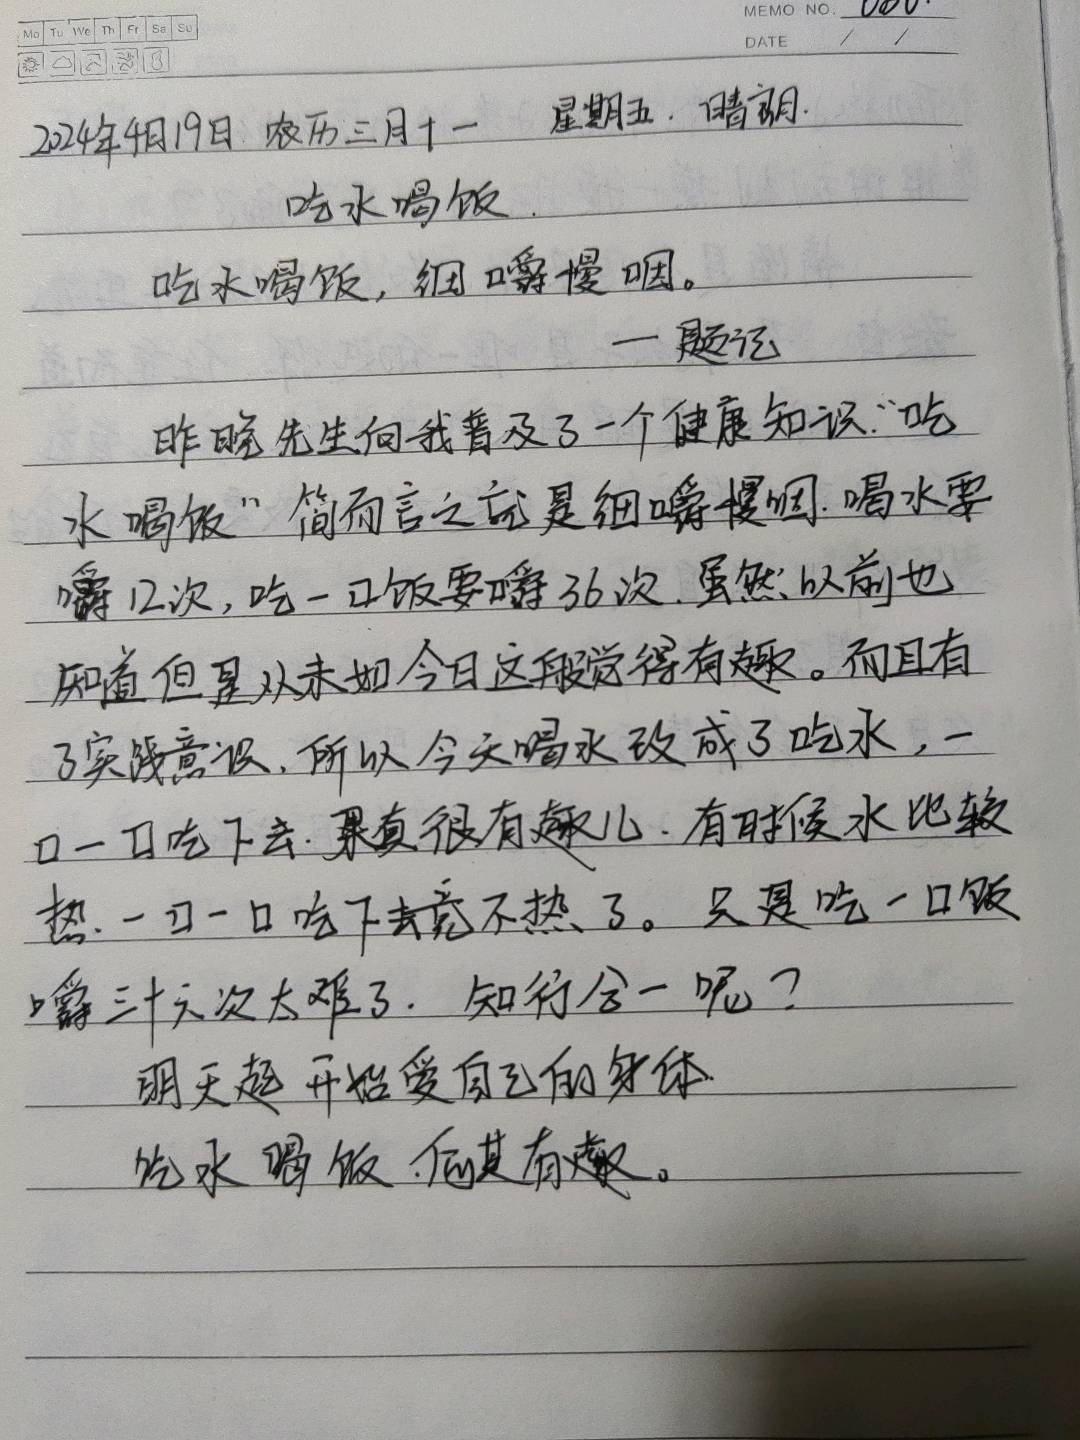 Mo Tu We Th Fr Sa Su
MEMO NO.
DATE / /
2024年4月19日 农历三月十一 星期五. 晴朗.
吃水喝饭.
吃水喝饭,细嚼慢咽。
一题记
昨晚先生向我普及了一个健康知识:“吃
水喝饭”简而言之就是细嚼慢咽.喝水要
嚼12次,吃一口饭要嚼36次.虽然以前也
知道但是从未如今日这般觉得有趣。而且有
了实践意识.所以今天喝水改成了吃水,一
口一口吃下去.果真很有趣儿.有时候水比较
热.一口一口吃下去竟不热了。只是吃一口饭
嚼三十六次太难了. 知行合一呢?
明天起开始爱自己的身体.
吃水喝饭.何其有趣。